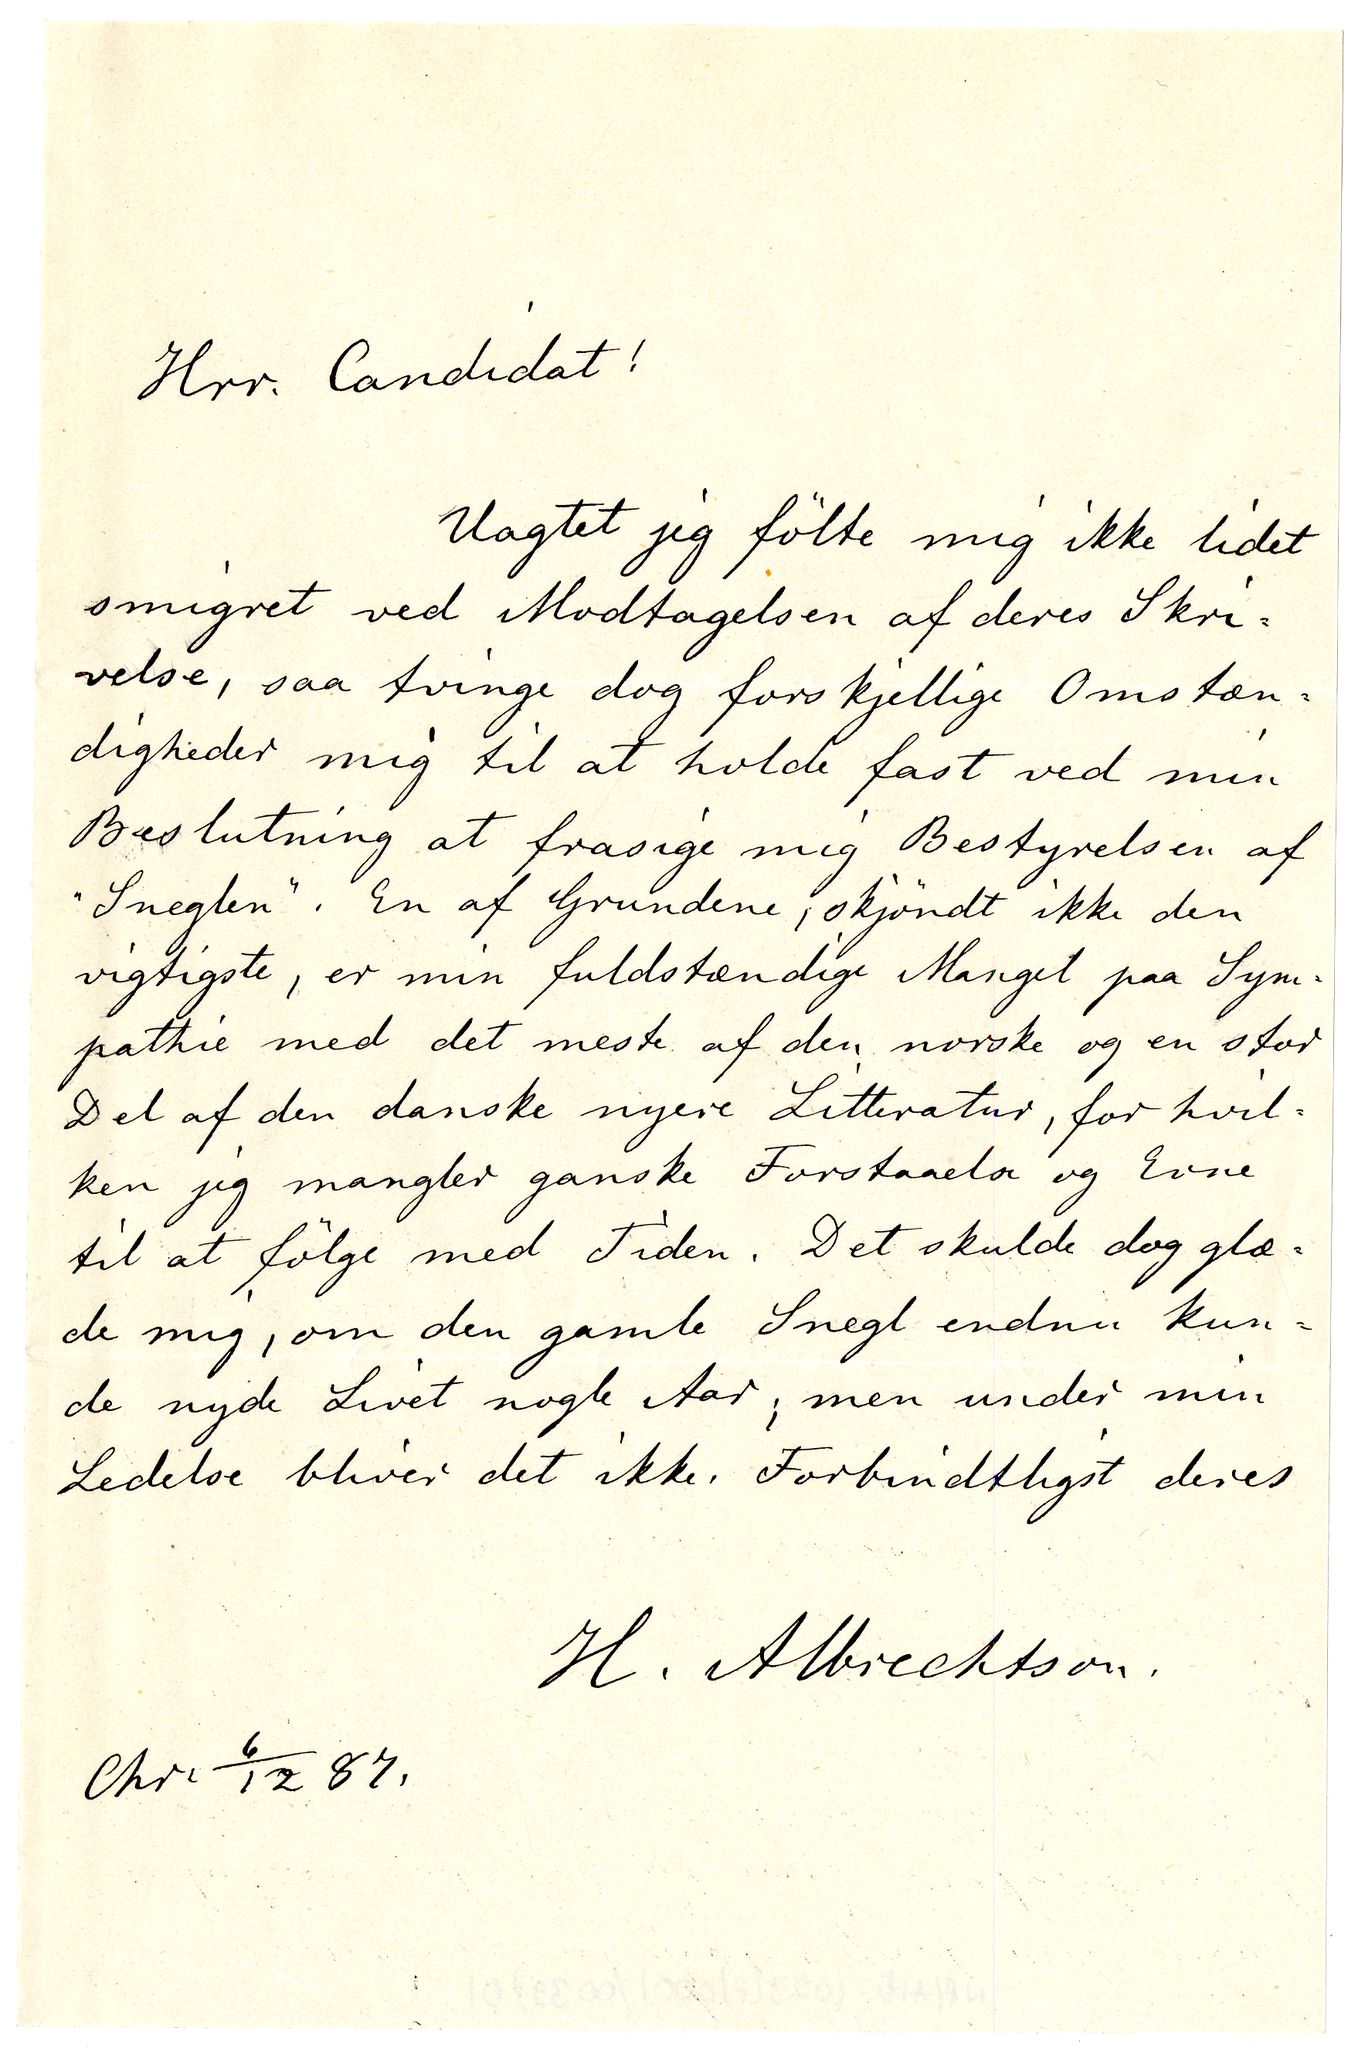 Hrr. Candidat!
Uagtet jeg fölte mig ikke lidet
smigret ved Modtagelsen af deres Skri-
velse, saa tvinge dog forskjellige Omstæn-
digheder mig til at holde fast ved min
Beslutning at frasige mig Bestyrelsen af
"Sneglen". En af Grundene, skjöndt ikke den
vigtigste, er min fuldstændige Mangel paa Sym-
pathie med det meste af den norske og en stor
Del af den danske nyere Litteratur, for hvil-
ken jeg mangler ganske Forstaaelse og Evne
til at fölge med Tiden. Det skulde dog glæ-
de mig, om den gamle Snegl endnu kun-
de nyde Livet nogle Aar; men under min
Ledelse bliver det ikke. Forbindtligst deres
H. Albrechtson.
Chr. 6/12 87.